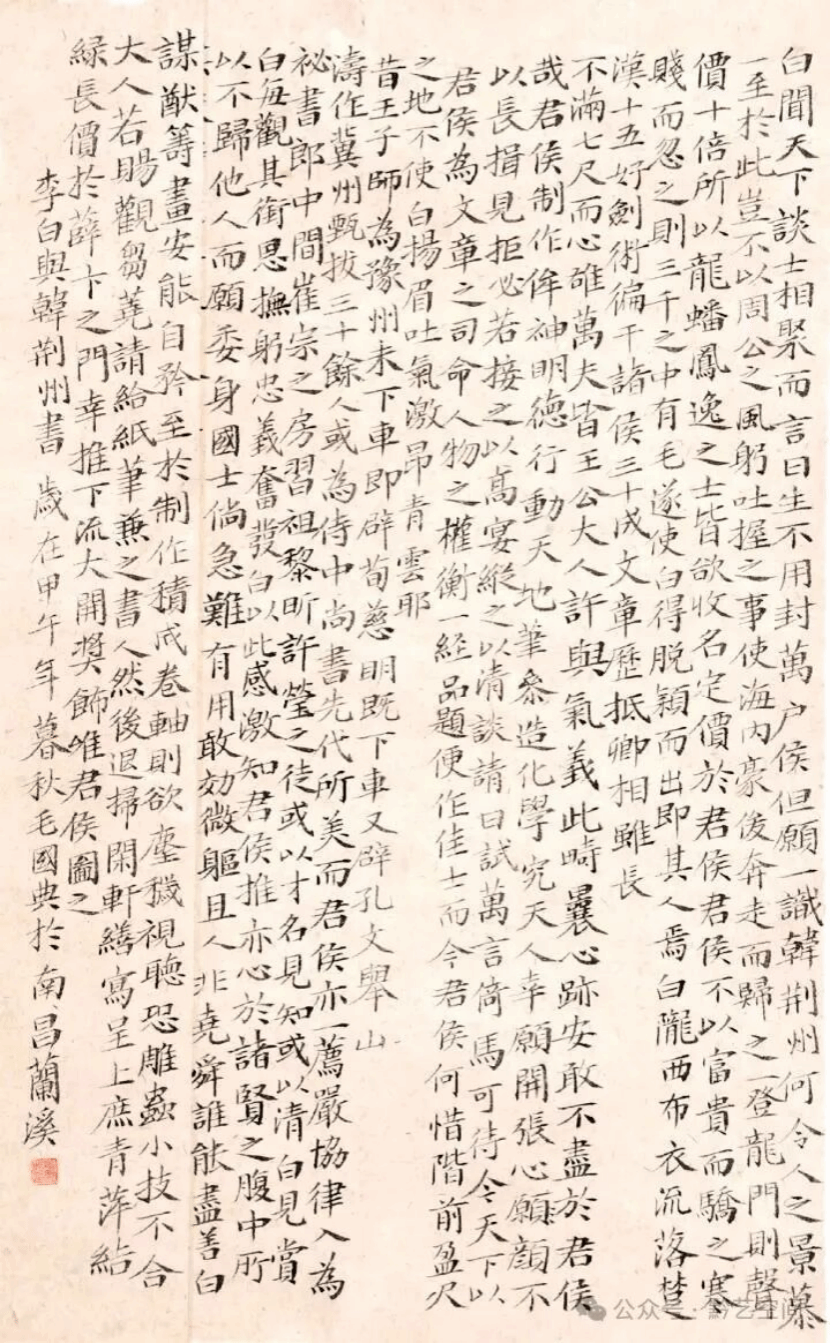 白聞天下談士相聚而言曰生不用封萬户侯但願一識韓荆州何令人之景慕
一至於此豈不以周公之風躬吐握之事使海内豪俊奔走而歸之一登龍門則聲
價十倍所以龍蟠鳳逸之士皆欲收名定價於君侯君侯不以富貴而驕之寒
賤而忽之則三千之中有毛遂使白得脱穎而出即其人焉白隴西布衣流落楚
漢十五好劍術徧干諸侯三十成文章歷抵卿相雖長
不滿七尺而心雄萬夫皆王公大人許與氣義此疇曩心跡安敢不盡於君侯
哉君侯制作侔神明德行動天地筆參造化學究天人幸願開張心願顔不
以長揖見拒必若接之以高宴縱之以清談請日試萬言倚馬可待今天下以
君侯為文章之司命人物之權衡一經品題便作佳士而今君侯何惜階前盈尺
之地不使白揚眉吐氣激昂青雲耶
昔王子師為豫州未下車即辟荀慈明既下車又辟孔文舉山
濤作冀州甄拔三十餘人或為侍中尚書先代所美而君侯亦一薦嚴協律入為
祕書郎中間崔宗之房習祖黎昕許瑩之徒或以才名見知或以清白見賞
白每觀其銜恩撫躬忠義奮發白以此感激知君侯推亦心於諸賢之腹中所
以不歸他人而願委身國士倘急難有用敢効微軀且人非堯舜誰能盡善白
謀猷籌畫安能自矜至於制作積成卷軸則欲塵穢視聽恐雕蟲小技不合
大人若賜觀芻蕘請給紙筆兼之書人然後退掃閑軒繕寫呈上庶青萍結
緑長價於薛卞之門幸推下流大開奬飾唯君侯圖之
李白與韓荆州書 歲在甲午年暮秋毛國典於南昌蘭溪
公众号·黔艺空间